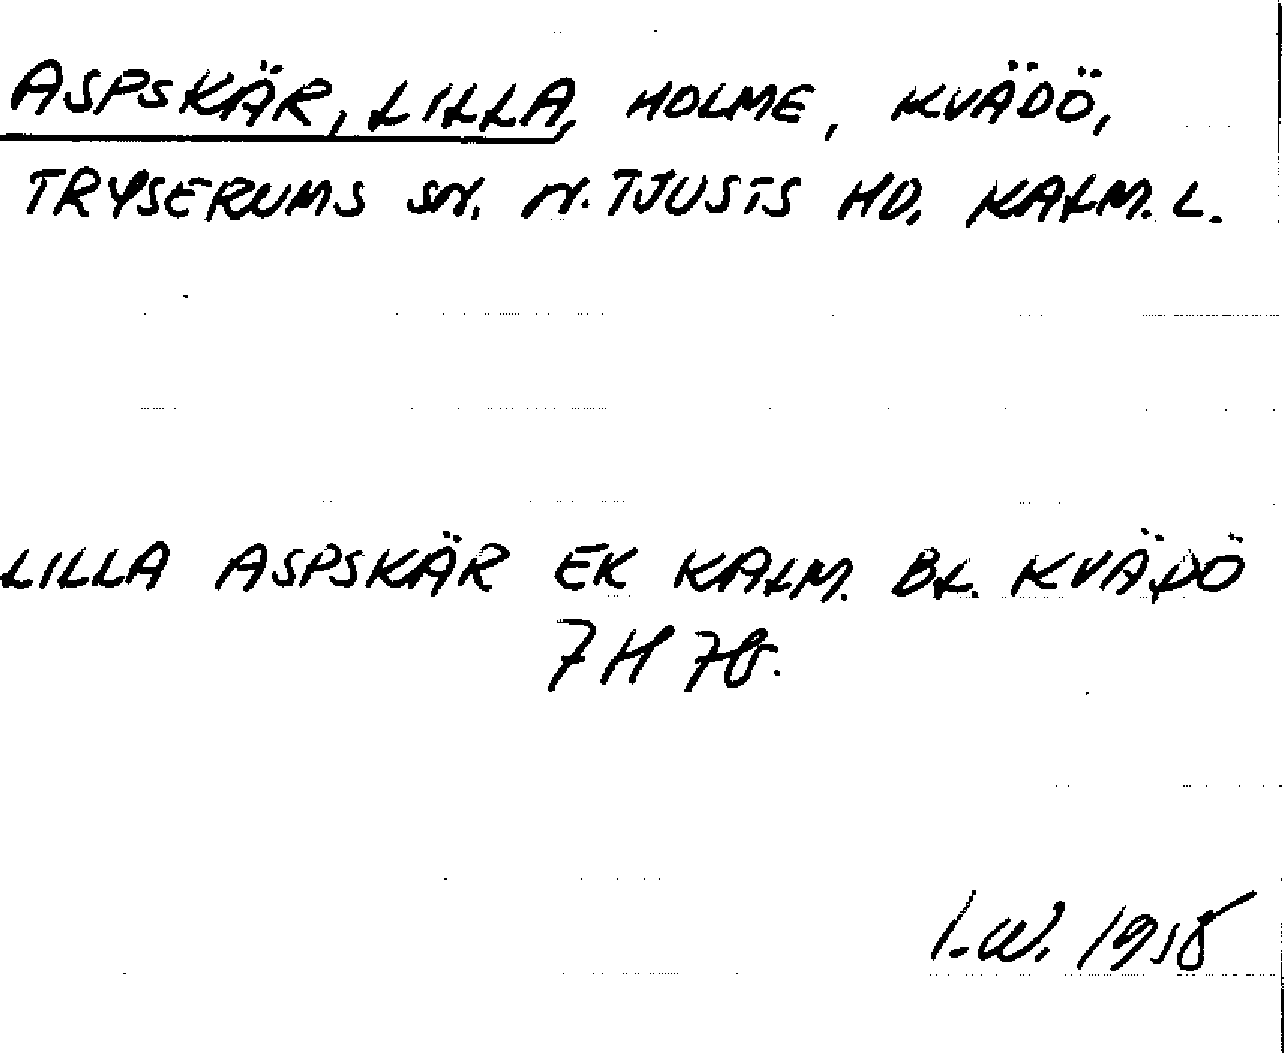 ASPSKÄR, LILLA, HOLME, KVÄDÖ,
TRYSERUMS SN. N. TJUSTS HD. KALM. L.
LILLA ASPSKÄR EK KALM. BL. KVÄDÖ
7H 7b.
I.W. 1958